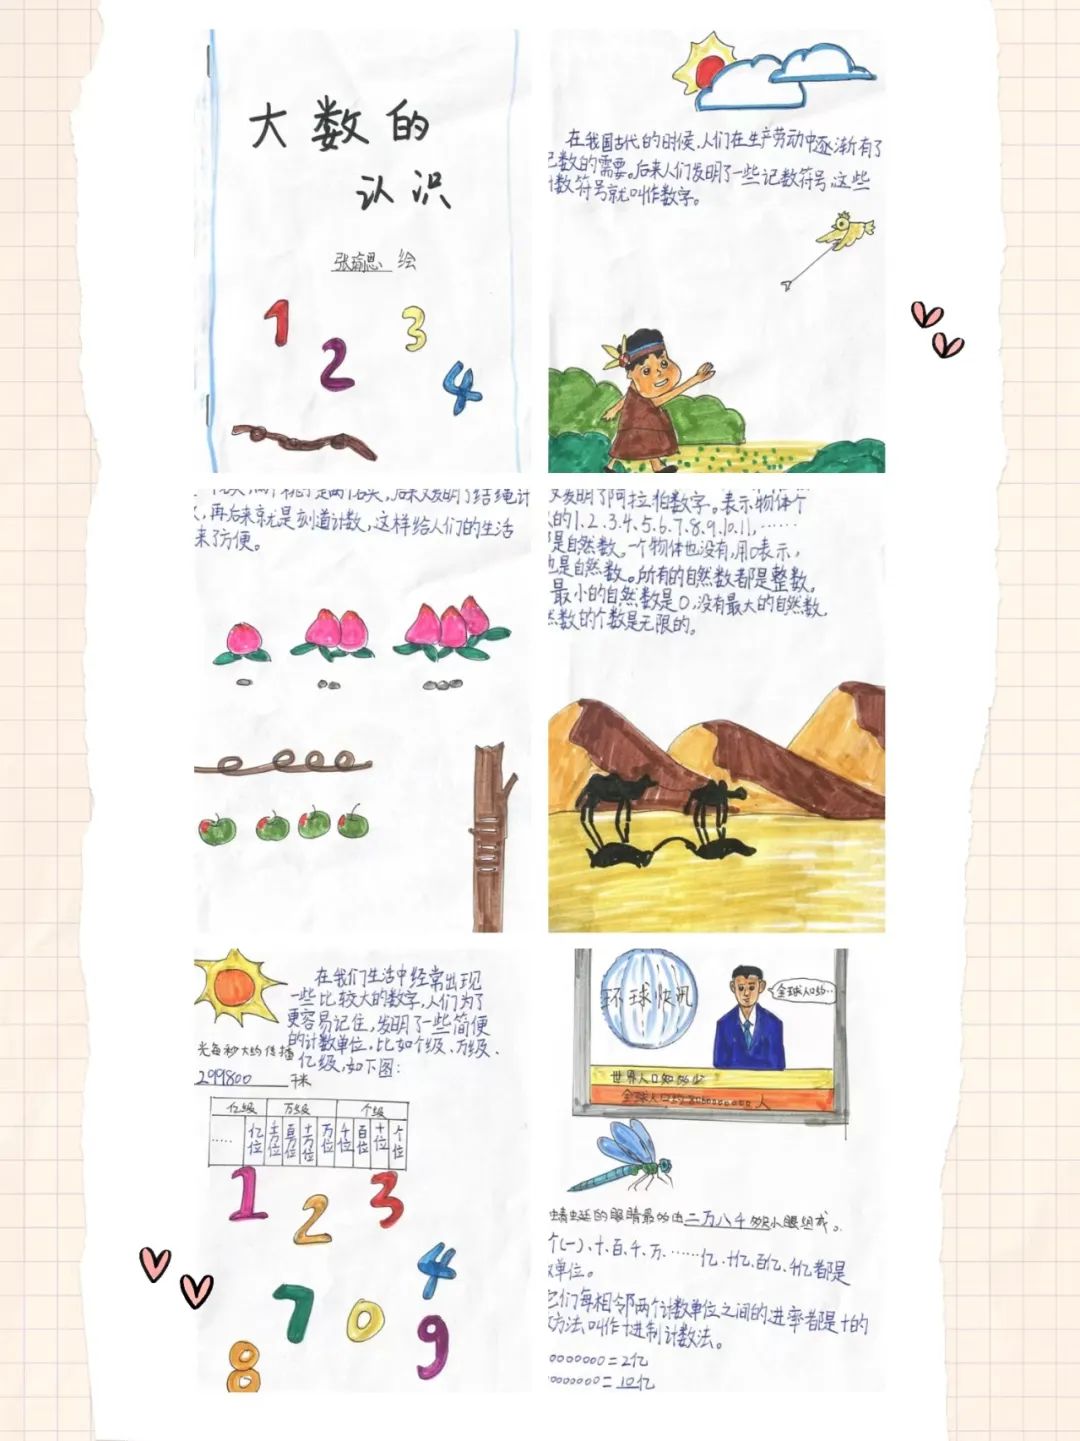 大数的
认识
张瑜思 绘
1
2
3
4
在我国古代的时候,人们在生产劳动中逐渐有了
数的需要。后来人们发明了一些记数符号,这些
数符号就叫作数字。
后来又发明了结绳计
,再后来就是刻道计数,这样给人们的生活
来了方便。
发明了阿拉伯数字。表示物体个
的1、2、3、4、5、6、7、8、9、10、11、……
是自然数。一个物体也没有,用0表示,
也是自然数。所有的自然数都是整数。
最小的自然数是0,没有最大的自然数,
数的个数是无限的。
在我们生活中经常出现
一些比较大的数字,人们为了
更容易记住,发明了一些简便
的计数单位。比如个级、万级、
亿级,如下图:
光每秒大约传播
299800千米
亿级 万级 个级
…… 亿位 千万位 百万位 十万位 万位 千位 百位 十位 个位
1
2
3
4
7
0
9
8
环球快讯
全球人口约…
世界人口知多少
全球人口约
人
蜻蜓的眼睛最多由二万八千 小眼组成。
个(一)、十、百、千、万、……亿、十亿、百亿、千亿都是
单位。
它们每相邻两个计数单位之间的进率都是十的
方法叫作十进制计数法。
0000000=2亿
0000000=10亿